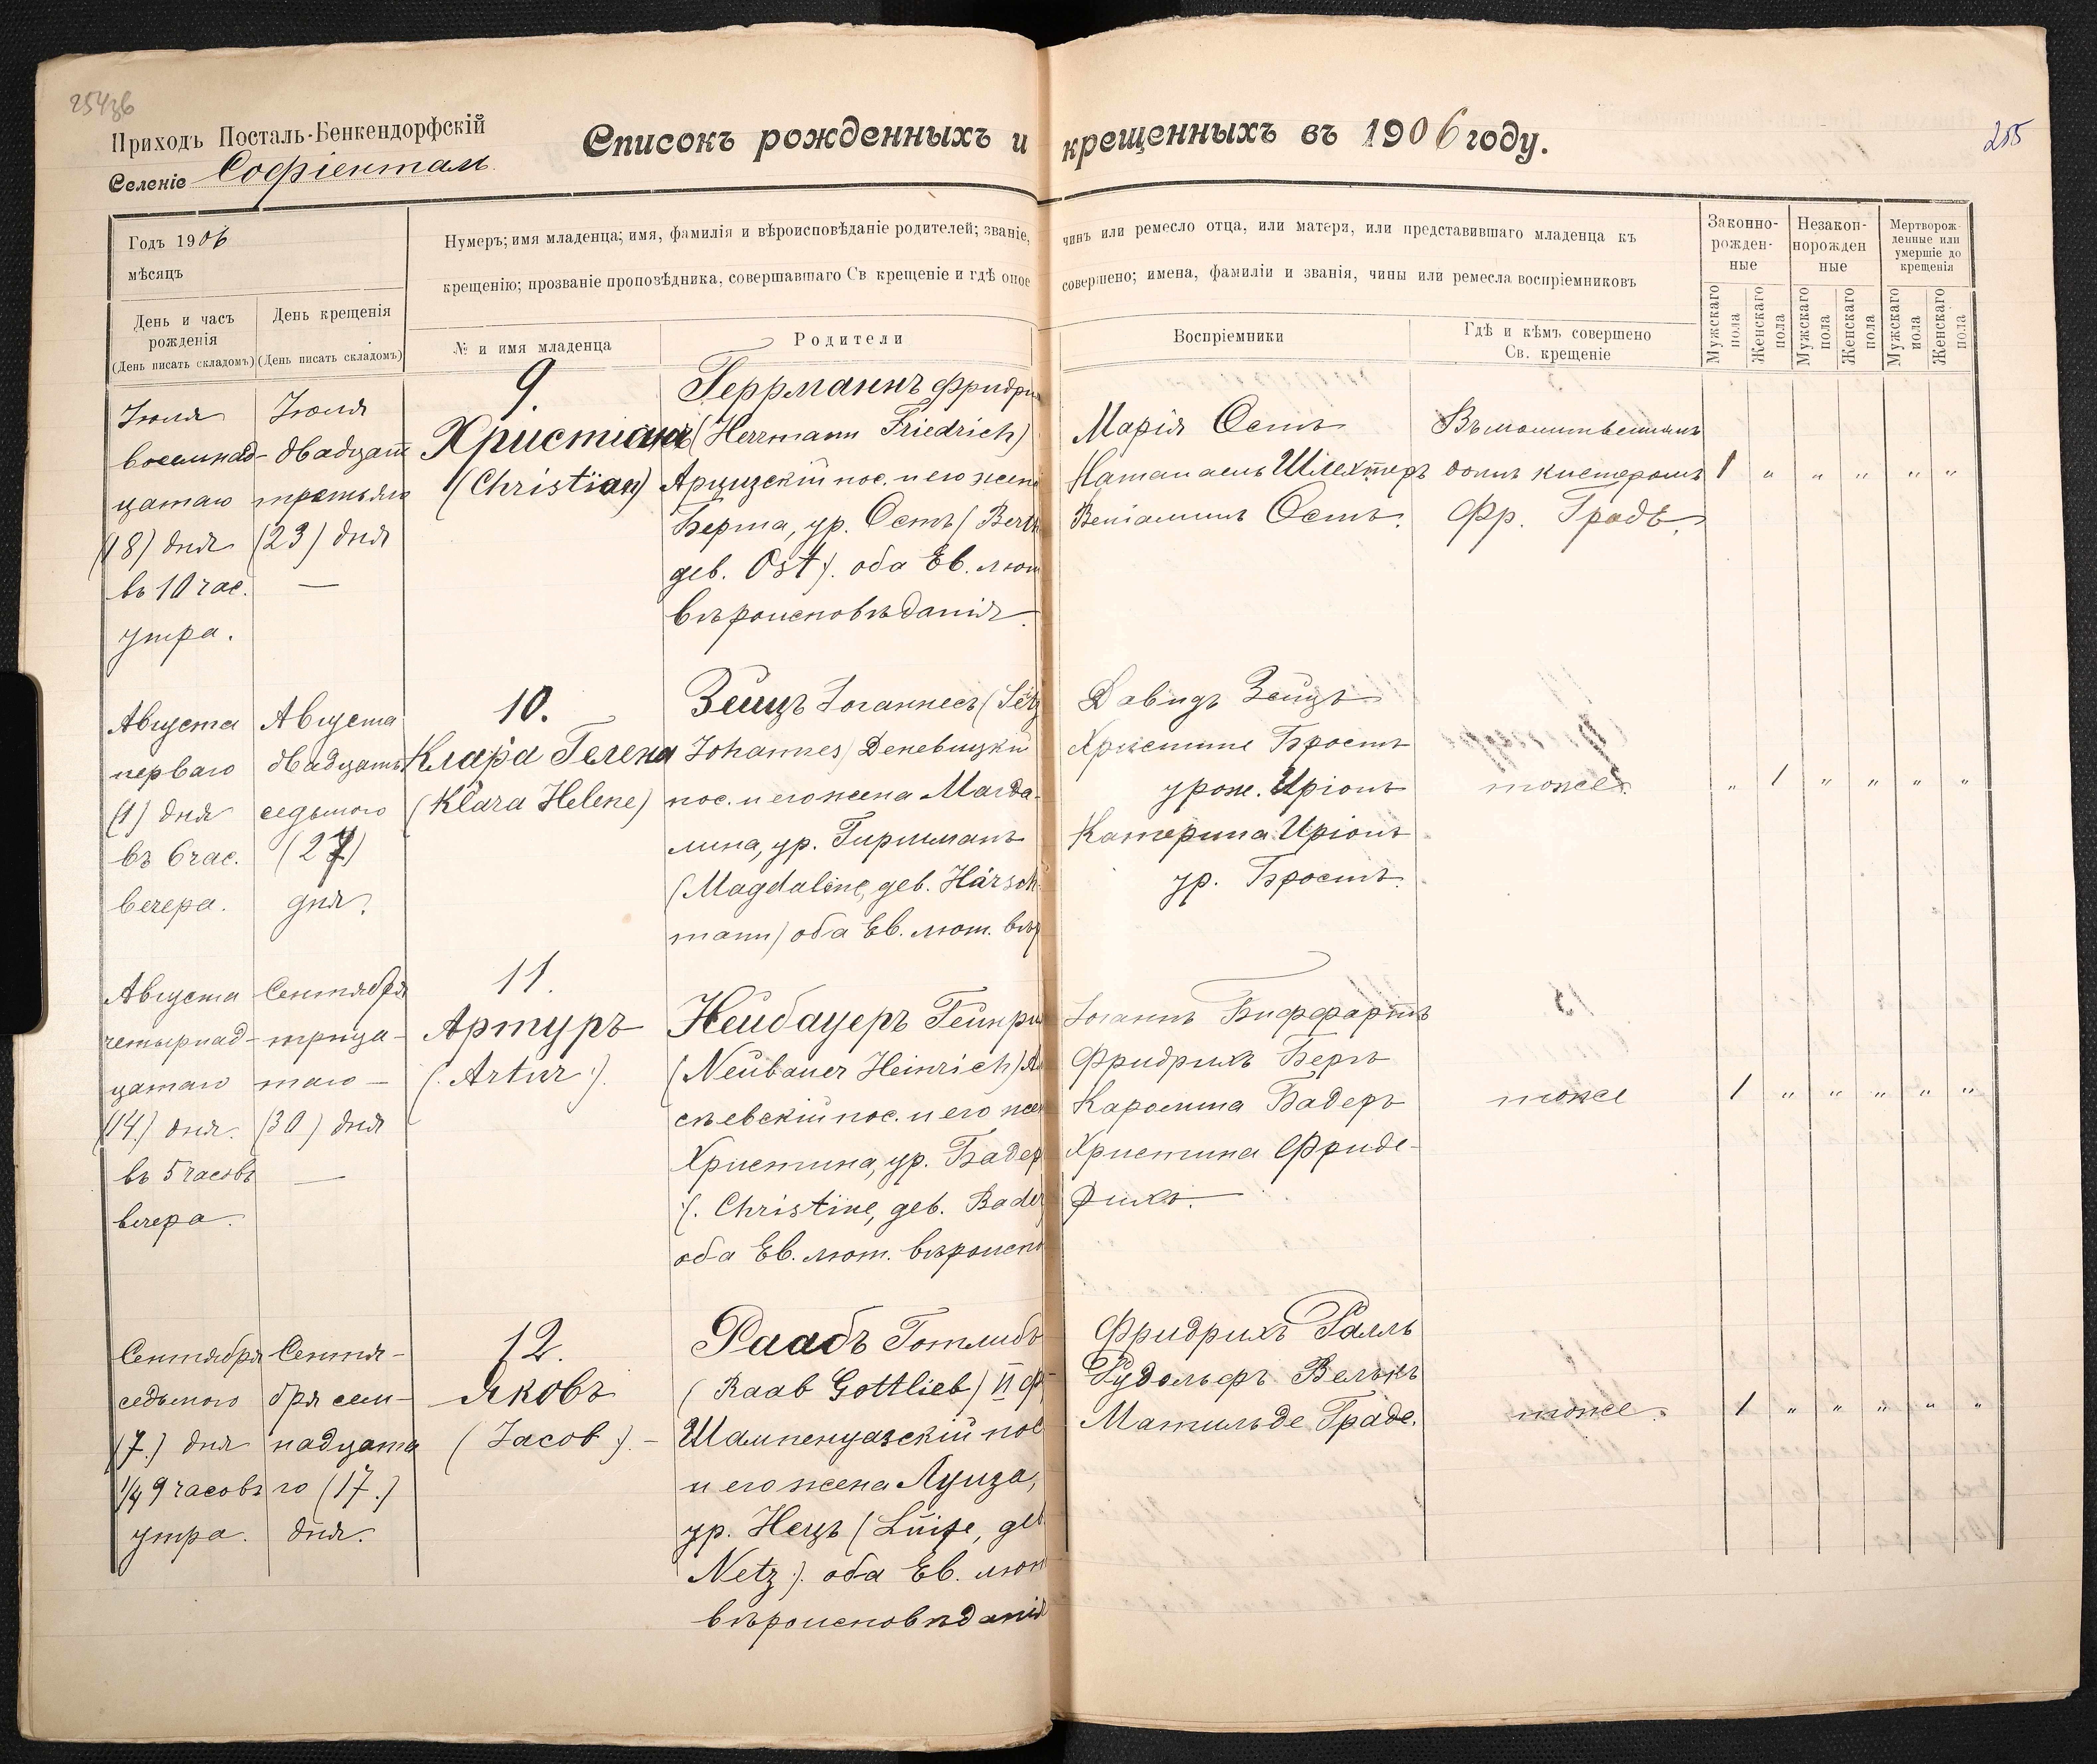 254об
Приходъ Посталь-Бенкендорфскій
Селеніе Софіенталь
Списокъ рожденныхъ и крещенныхъ въ 1906 году.
255
Годъ 1906
мѣсяцъ
День и часъ рожденія
(День писать складомъ)
День крещенія
(День писать складомъ)
Нумеръ; имя младенца; имя, фамилія и вѣроисповѣданіе родителей; званіе, чинъ или ремесло отца, или матери, или представившаго младенца къ
крещенію; прозваніе проповѣдника, совершавшаго Св крещеніе и гдѣ оное совершено; имена, фамиліи и званія, чины или ремесла воспріемниковъ
№ и имя младенца
Родители
Воспріемники
Гдѣ и кѣмъ совершено
Св. крещеніе
Законно-
рожден-
ные
Незакон-
норожден
ные
Мертворож-
денные или
умершіе до
крещенія
Мужскаго пола
Женскаго пола
Мужскаго пола
Женскаго пола
Мужскаго пола
Женскаго пола
Іюля
восемнад-
цатаго
(18) дня
въ 10 час.
утра.
Іюля
двадцать
третьяго
(23) дня
—
9.
Христіанъ
(Christian)
Геррманнъ Фридри
(Herrmann Friedrich)
Арцизскій пос. и его жена
Берта, ур. Остъ (Berth
geb. Ost). оба Ев. лют
вѣроисповѣданія.
Марія Остъ
Натанаель Шлехтеръ
Веніаминъ Остъ.
Въ молитвенномъ
домѣ кистеромъ
Фр. Граде.
1 " " " " "
Августа
перваго
(1) дня
въ 6 час.
вечера.
Августа
двадцать
седьмого
(27)
дня.
10.
Клара Гелена
(Klara Helene)
Зейцъ Іоганнесъ (Seitz
Johannes) Деневицкій
пос. и его жена Магда-
лина, ур. Гиршманъ
(Magdaline, geb. Härsch-
mann) оба Ев. лют. вѣр
Давидъ Зейцъ
Христине Бростъ
урож. Иріонъ
Катерина Иріонъ
ур. Бростъ.
тоже.
" 1 " " " "
Августа
четырнад-
цатаго
(14.) дня.
въ 5 часовъ
вечера.
Сентября
трица-
таго —
(30) дня
—
11.
Артуръ
(. Artur .)
Нейбауеръ Гейнри
(Neubauer Heinrich)
сѣевскій пос. и его жен
Христина, ур. Бадер
(. Christine, geb. Bader
оба Ев. лют. вѣроиспо
Іоганъ Бифрартъ
Фридрихъ Бергъ
Каролина Бадеръ
Христина Фриде-
рихъ.
тоже
1 " " " " "
Сентября
седьмого
(7.) дня
1/4 9 часовъ
утра.
Сентя-
бря сем-
надцата
го (17.)
дня.
12.
Яковъ
(Jacob .). —
Раабъ Готлибъ
(Raab Gottlieb) II Ф
Шампенуазскій пос
и его жена Луиза,
ур. Нецъ (Luise, geb
Netz .). оба Ев. лют
вѣроисповѣданія
Фридрихъ Ралль
Рудольфъ Велькъ
Матильде Граде.
тоже.
1 " " " " "